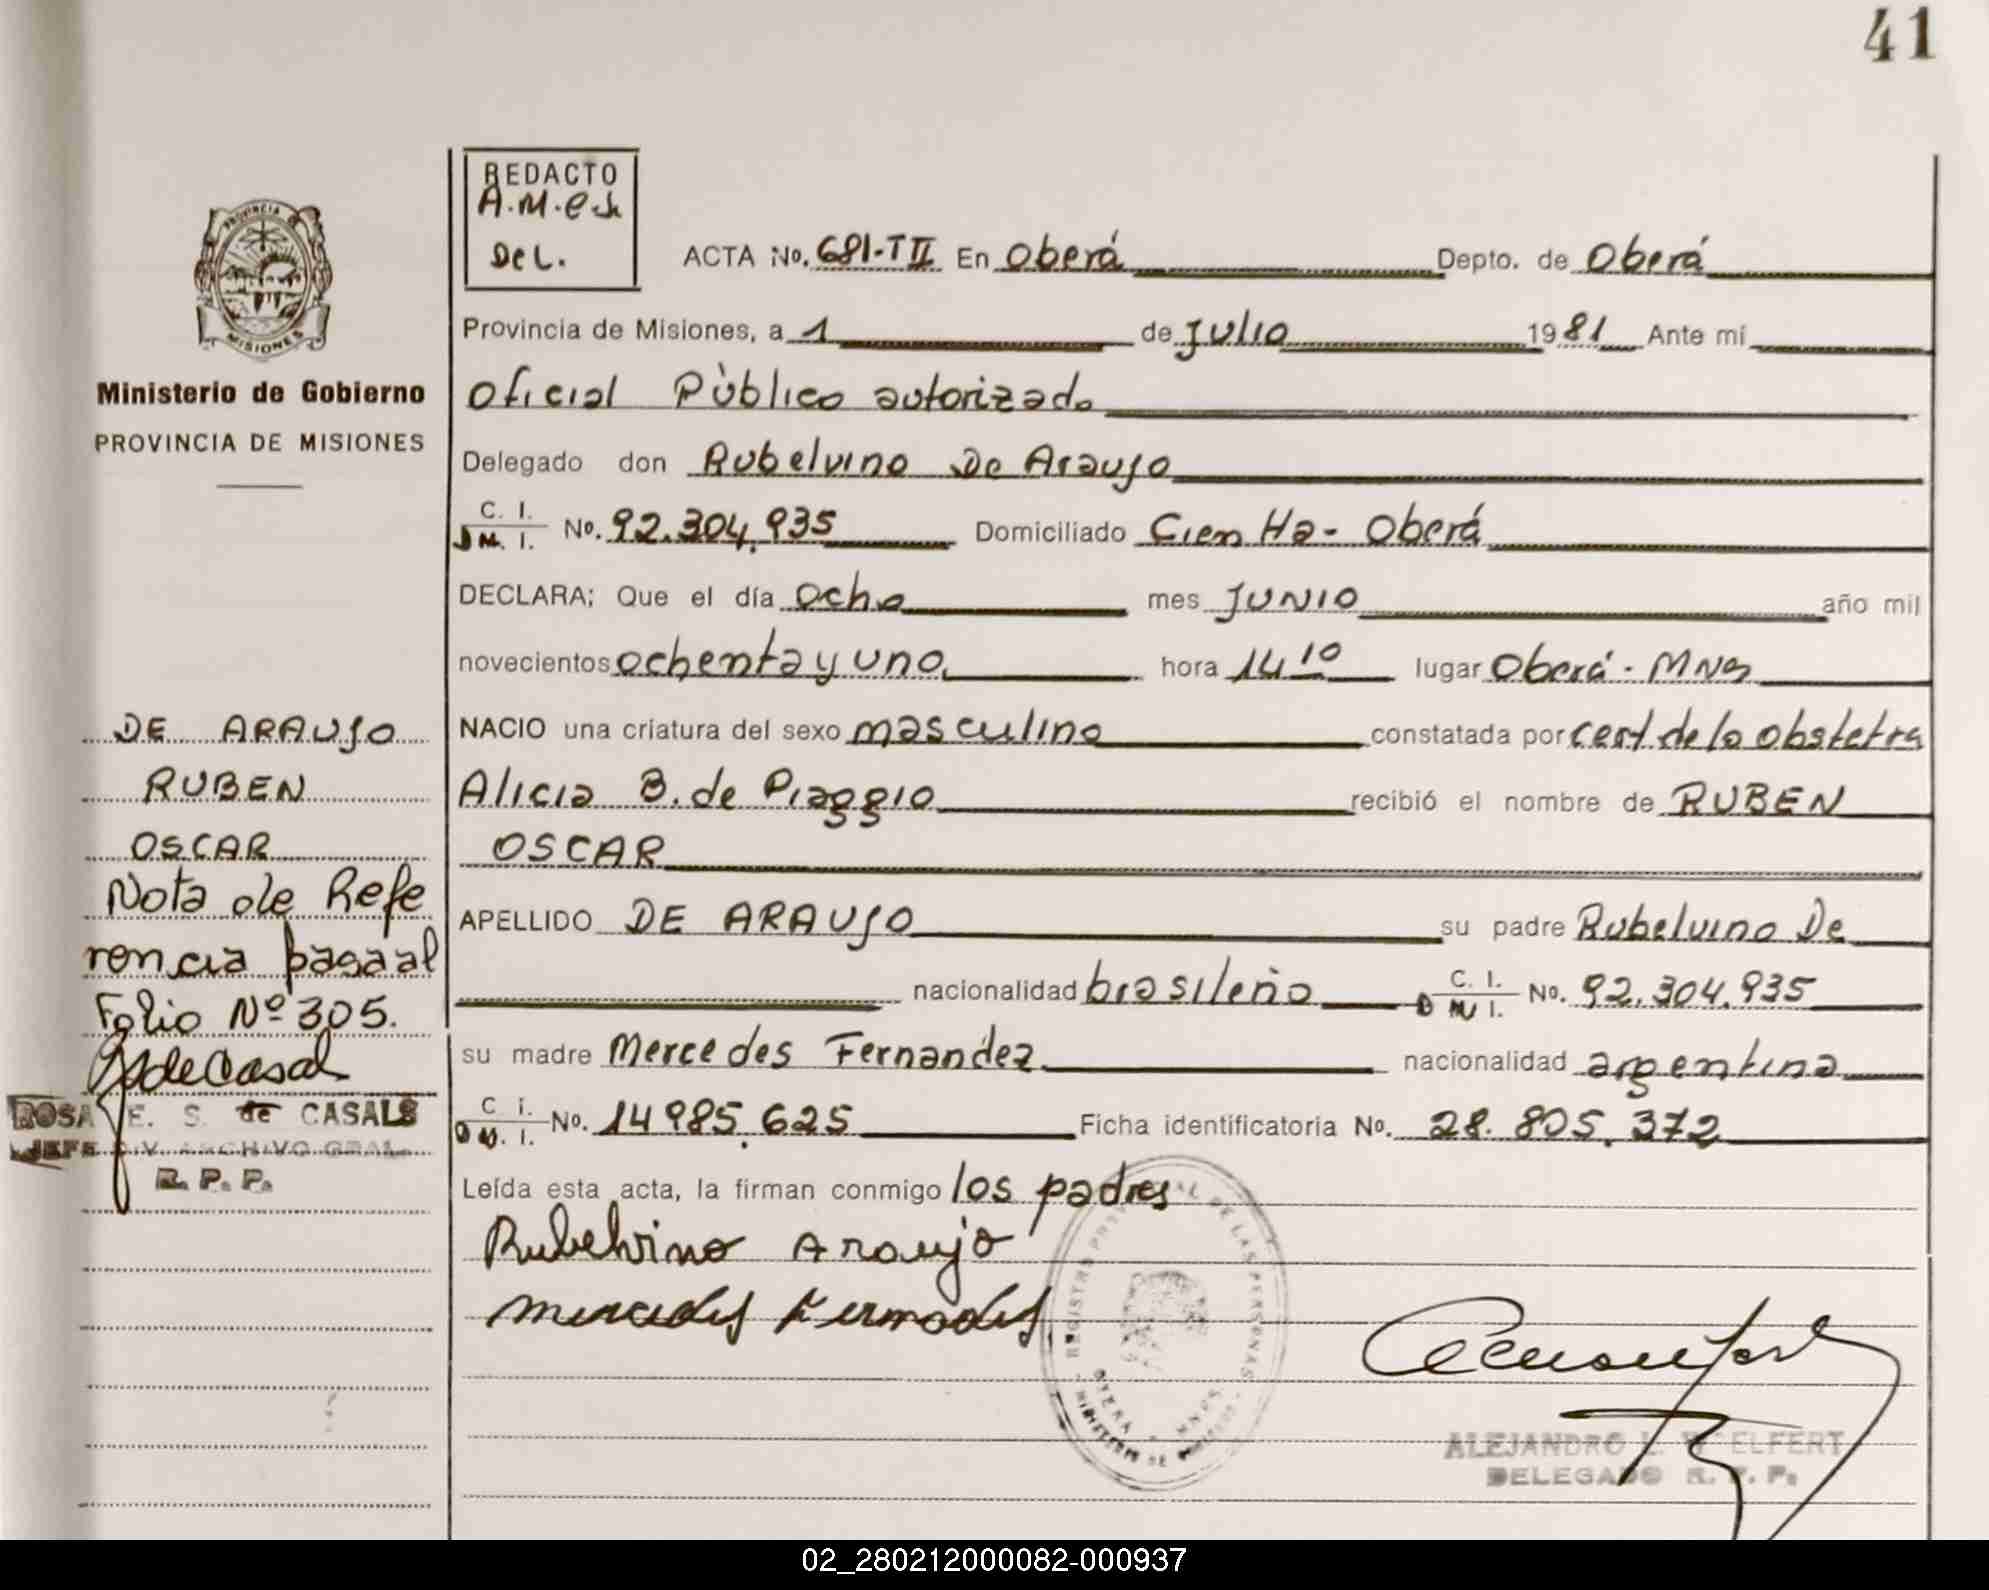 41
REDACTO
A.M.e.h
Del.
ACTA No. 681-T II En Oberá Depto. de Oberá
Provincia de Misiones, a 1 de Julio 1981 Ante mí
Oficial Público autorizado
Delegado don Rubelvino De Araujo
C. I.
D M. I. No. 92.304.935 Domiciliado Cien Ha - Oberá
DECLARA; Que el día ocho mes JUNIO año mil
novecientos ochenta y uno hora 14 10 lugar Oberá - MNes
NACIO una criatura del sexo masculino constatada por cert. de la obstetra
Alicia B. de Piaggio recibió el nombre de RUBEN
OSCAR
APELLIDO DE ARAUJO su padre Rubelvino De
nacionalidad brasileño C. I. D N I. No. 92.304.935
su madre Mercedes Fernandez nacionalidad argentina
C i.
D N. I. No. 14985.625 Ficha identificatoria No. 28.805.372
Leída esta acta, la firman conmigo los padres
Rubelvino Araujo
Mercedes Fernandes
REGISTRO PROVINCIAL DE LAS PERSONAS
OBERA - MNES
MINISTERIO DE GOBIERNO
ALEJANDRO L. WOELFERT
DELEGADO R. P. P.
PROVINCIA DE
MISIONES
Ministerio de Gobierno
PROVINCIA DE MISIONES
DE ARAUJO
RUBEN
OSCAR
Nota de Refe
rencia pasa al
Folio Nº 305.
de Casal
ROSA E. S. de CASALS
JEFE DIV. ARCHIVO GRAL.
R. P. P.
02_280212000082-000937